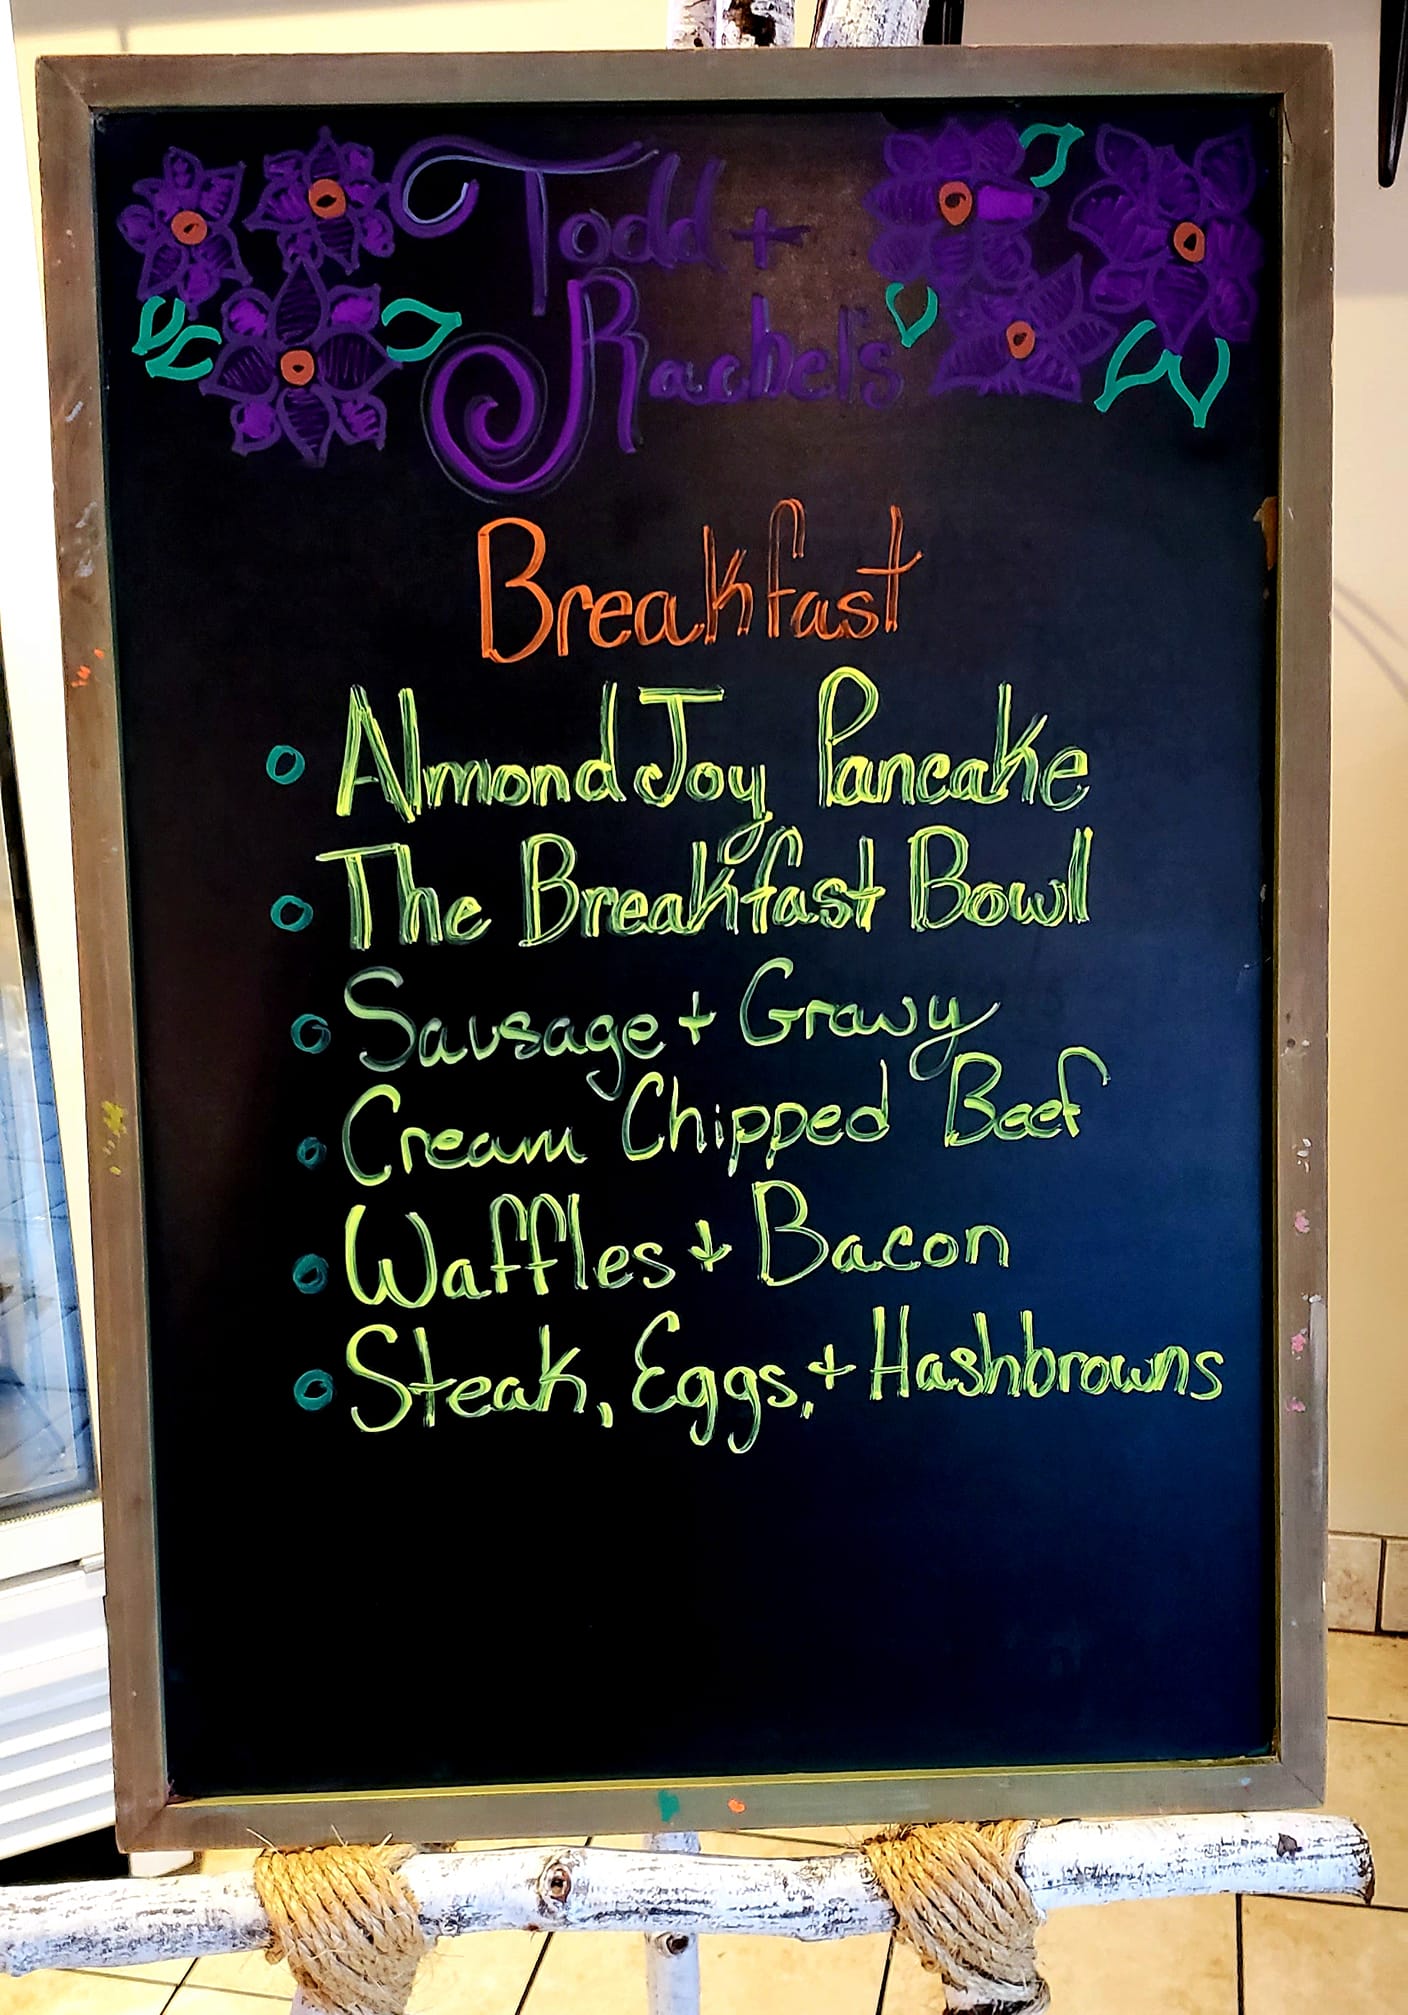 Todd +
Rachel's
Breakfast
Almond Joy Pancake
The Breakfast Bowl
Sausage + Gravy
Cream Chipped Beef
Waffles + Bacon
Steak, Eggs, + Hashbrowns